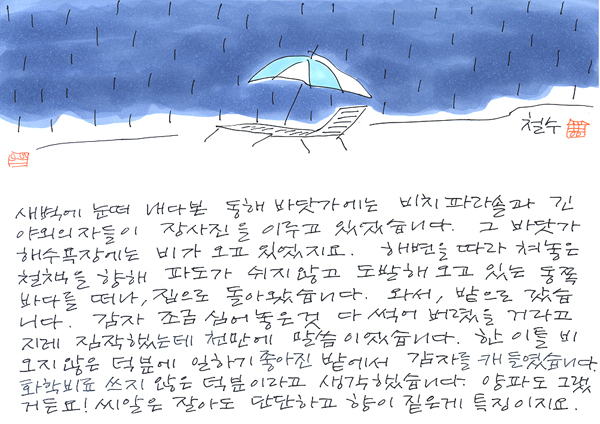 철수
새벽에 눈떠 내다본 동해 바닷가에는 비치파라솔과 긴
야외의자들이 장사진을 이루고 있었습니다. 그 바닷가
해수욕장에는 비가 오고 있었지요. 해변을 따라 쳐놓은
철책을 향해 파도가 쉬지않고 도발해오고 있는 동쪽
바다를 떠나, 집으로 돌아왔습니다. 와서, 밭으로 갔습
니다. 감자 조금 심어놓은것 다 썩어 버렸을 거라고
지레 짐작했는데 천만에 말씀이었습니다. 한 이틀 비
오지않은 덕분에 일하기 좋아진 밭에서 감자를 캐 들였습니다.
화학비료 쓰지 않은 덕분이라고 생각했습니다. 양파도 그랬
거든요! 씨알은 잘아도 단단하고 향이 짙은게 특징이지요.